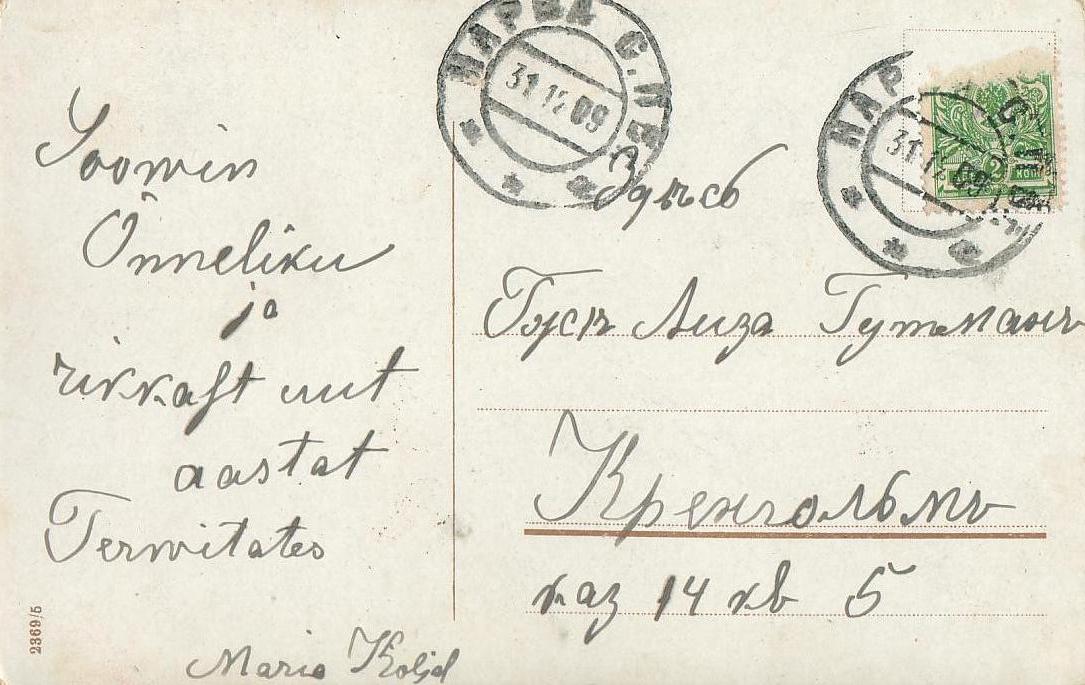 Soowin
Õnneliku
ja
rikkast uut
aastat
Terwitates
Maria
2369/5
НАРВА С.ПБ.
31.12.09
НАРВА С.ПБ.
31.12.09
2 КОП
Здѣсь
Лиза Гутманъ
Кренгольмъ
каз 14 кв 5